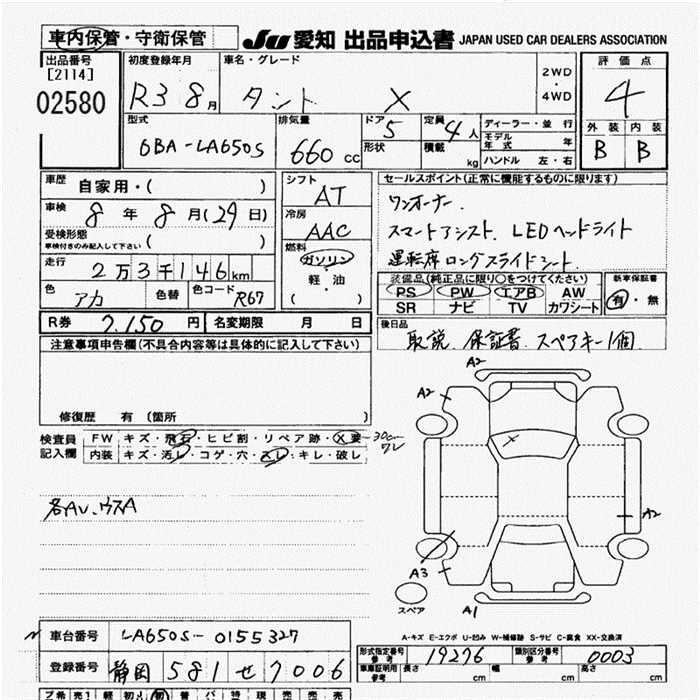 車内保管・守衛保管 JU 愛知 出品申込書 JAPAN USED CAR DEALERS ASSOCIATION
出品番号 [2114] 02580
初度登録年月 R3 8月
車名・グレード タント X
2WD ・ 4WD
評価点 4
外装 内装
B B
型式 6BA-LA650S
排気量 660 cc
ドア 5 形状
定員 4人 積載 kg
ディーラー・並行
モデル年式 年
ハンドル 左・右
車歴 自家用・( )
車検 8年 8月(29日)
受検形態 車検付きのみ記入して下さい ( )
走行 2万3千146km
色 アカ 色替 色コード R67
シフト AT
冷房 AAC
燃料 ガソリン ・ 軽・油 ( )
セールスポイント(正常に機能するものに限ります)
ワンオーナー.
スマートアシスト. LEDヘッドライト
運転席ロングスライドシート.
装備品(純正品に限り○をつけてください)
PS PW エアB AW
SR ナビ TV カワシート
新車保証書 有・無
R券 7.150円 名変期限 月 日
後日品 取説. 保証書. スペアキー1個
注意事項申告欄(不具合内容等は具体的に記入して下さい)
修復歴 有 〔箇所 〕
検査員記入欄
FW キズ・飛石・ヒビ割・リペア跡・X要 30cm ワレ
内装 キズ・汚レ・コゲ・穴・スレ・キレ・破レ
各AU. ウスA
A2
A2
A2
A3
A1
スペア
A-キズ E-エクボ U-凹み W-補修跡 S-サビ C-腐食 XX-交換済
車台番号 LA650S-0155327
登録番号 静岡 581 せ 7006
形式指定番号 参考 19276 類別区分番号 参考 0003
車庫証明用 参考 長さ 幅 高さ